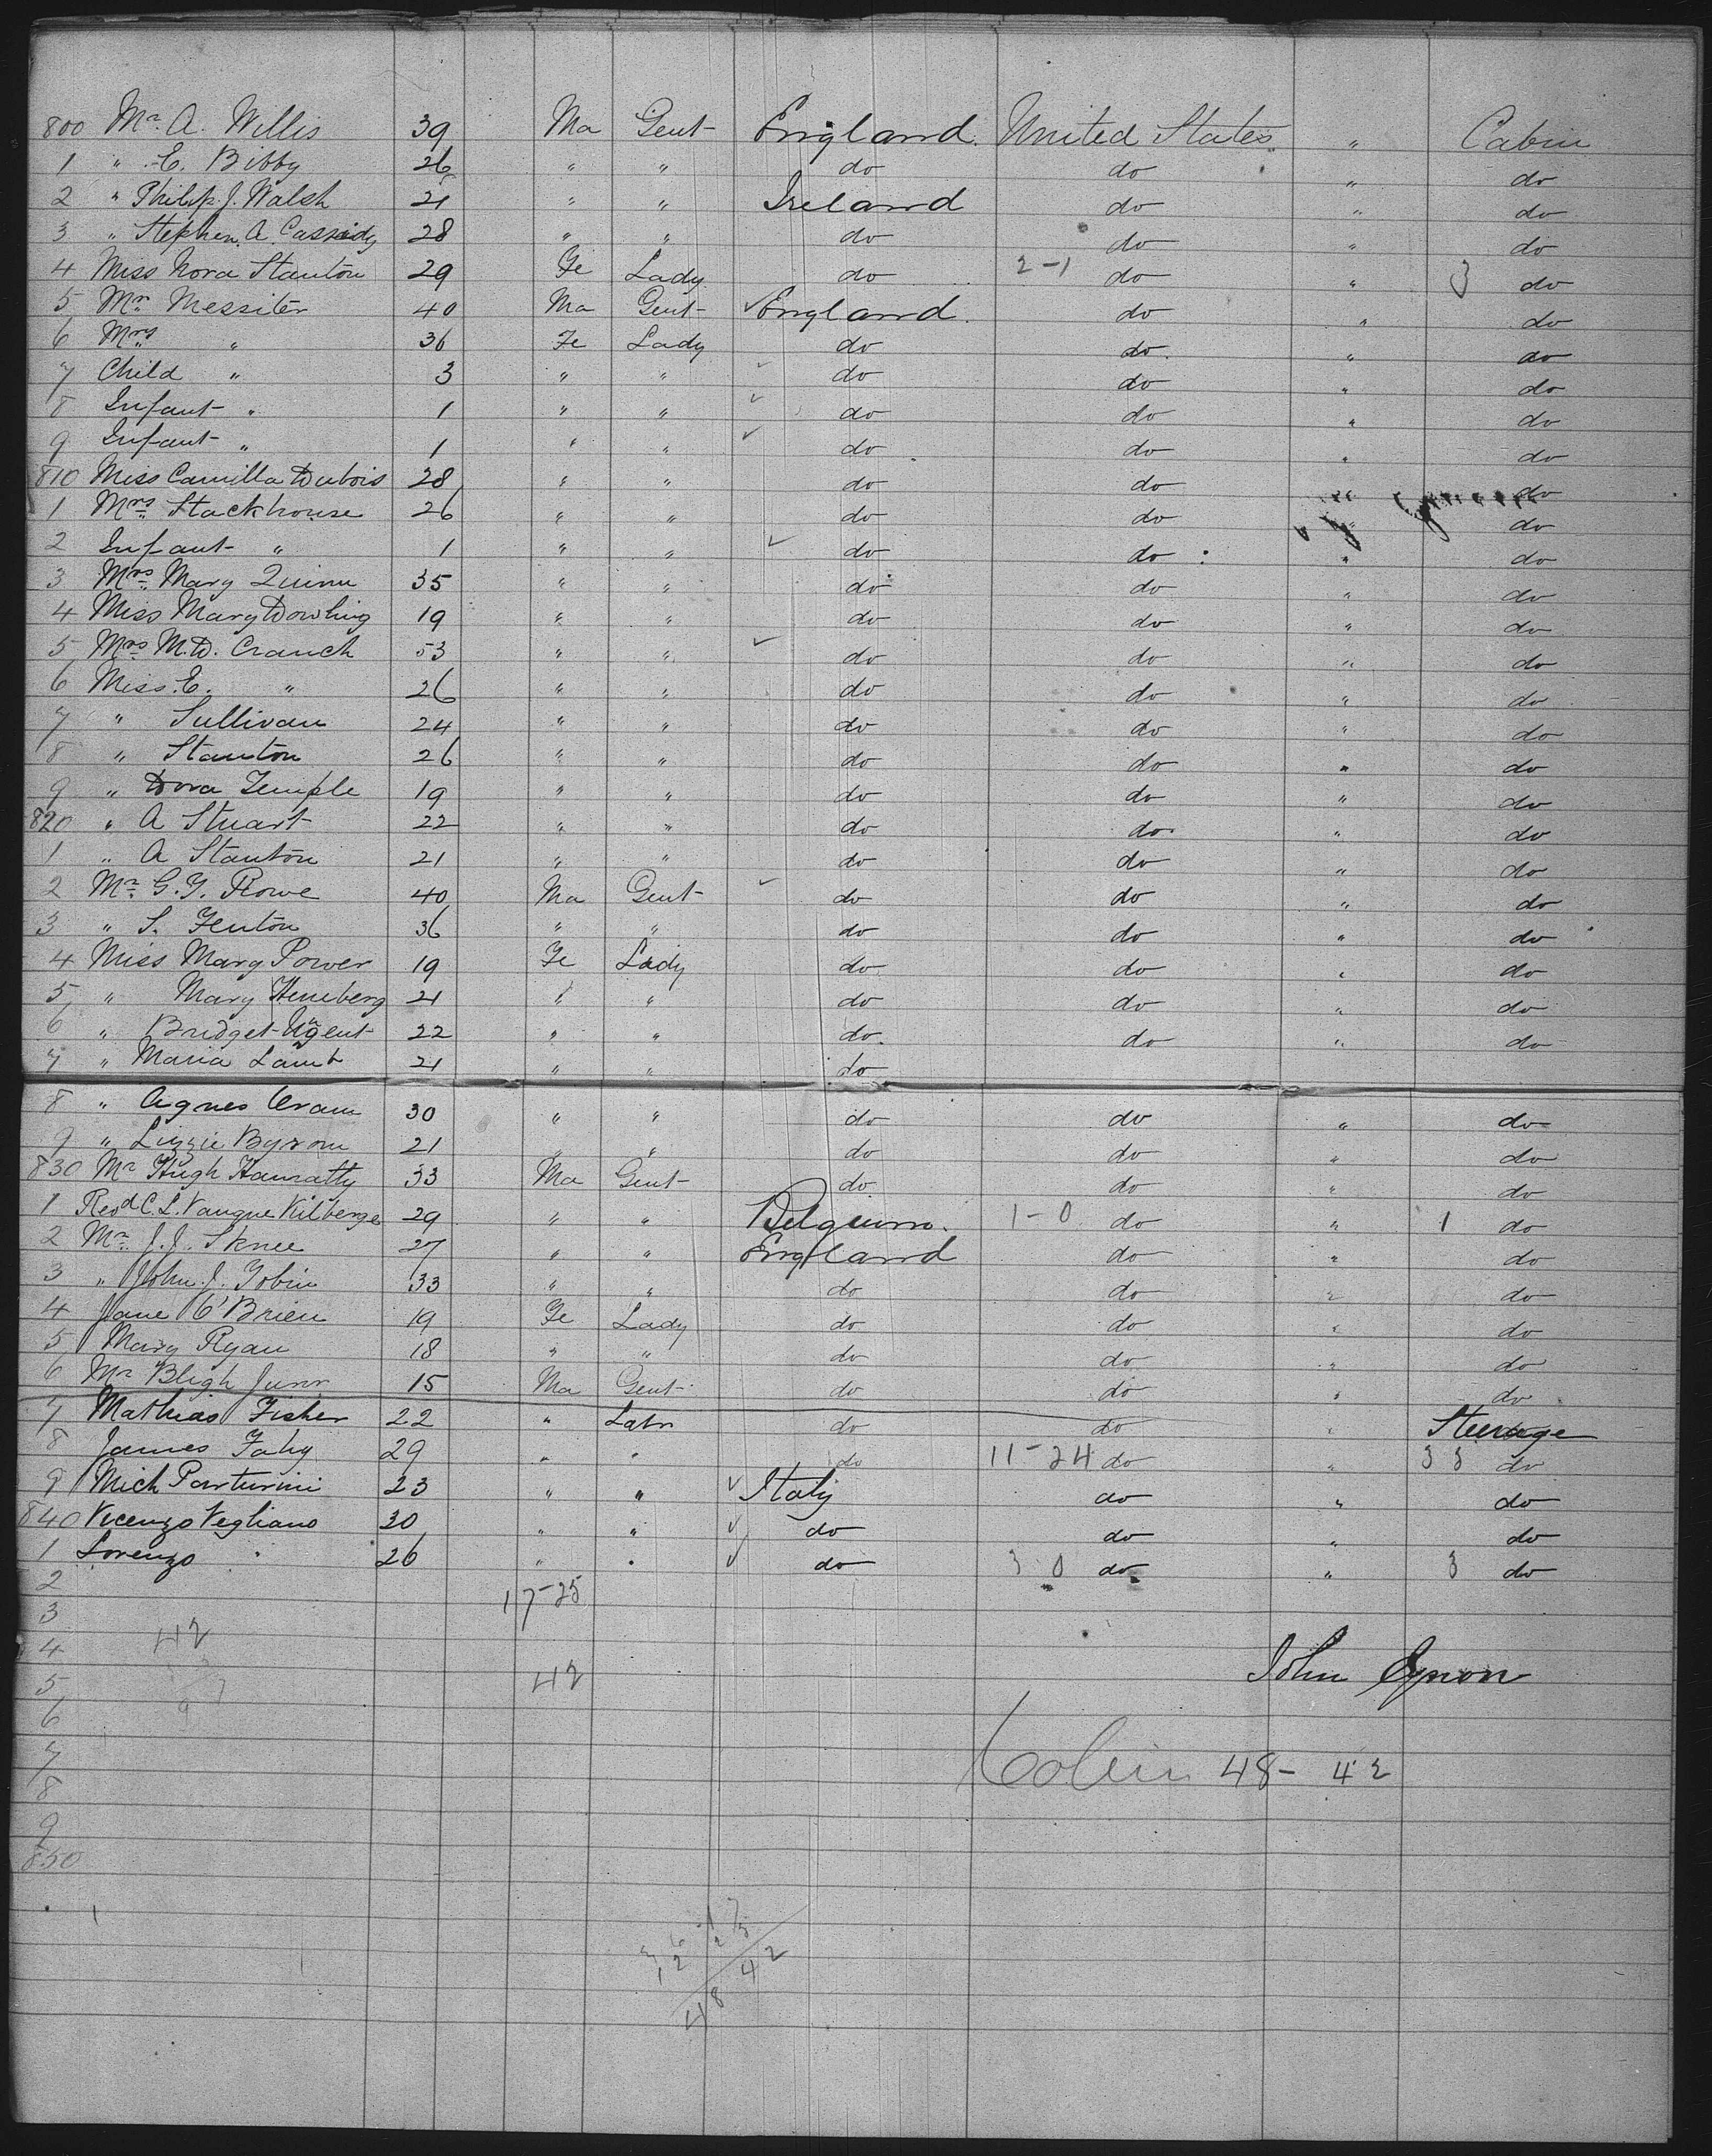 800 Mr. A. Willis 39 Ma Gent England. United States " Cabin
1 " E. Bibby 26 " " do do " do
2 " Philip J. Walsh 21 " " Ireland do " do
3 " Stephen. A. Cassidy 28 " " do do " do
4 Miss Nora Stanton 29 Fe Lady do 2-1 do " 3 do
5 Mr. Messiter 40 Ma Gent England. do " do
6 Mrs " 36 Fe Lady do do. " do
7 Child " 3 " " do do " do
8 Infant " 1 " " do do " do
9 Infant " 1 " " do do " do
810 Miss Camilla Dubois 28 " " do do " do
1 Mrs Stackhouse 26 " " do do " do
2 Infant " 1 " " do do " do
3 Mrs Mary Quinn 35 " " do do " do
4 Miss Mary Dowling 19 " " do do " do
5 Mrs M.D. Cranch 53 " " do do " do
6 Miss. E. " 26 " " do do " do
7 " Sullivan 24 " " do do " do
8 " Stanton 26 " " do do " do
9 " Dora Temple 19 " " do do " do
820 " A Stuart 22 " " do do " do
1 " A Stanton 21 " " do do " do
2 Mr. G. Rowe 40 Ma Gent do do " do
3 " S. Fenton 36 " " do do " do
4 Miss Mary Power 19 Fe Lady do do " do
5 " Mary Heneberg 21 " " do do " do
6 " Bridget 22 " " do. do " do
7 " Maria Lamb 21 " " do
8 " Agnes 30 " " do do " do
9 " Lizzie Byrom 21 " " do do " do
830 Mr Hugh Hanratty 33 Ma Gent do do " do
1 Revd C. L. 29 " " Belgium. 1-0 do " 1 do
2 Mr. J. J. 27 " " England do " do
3 " John. J. Tobin 33 " " do do " do
4 Jane O'Brien 19 Fe Lady do do " do
5 Mary Ryan 18 " " do do " do
6 Mr Bligh Junr 15 Ma Gent do do " do
7 Mathias Fisher 22 " Labr do do " Steerage
8 James Fahy 29 " " do 11-24 do " do
9 Mich Parturini 23 " " Italy do " do
840 Vicenzo Vegliano 30 " " do do " do
1 Lorenzo " 26 " " do 3 0 do " 3 do
2 17-25
3
4 42
5 42 John
6
7 48- 42
8
9
850
48 42